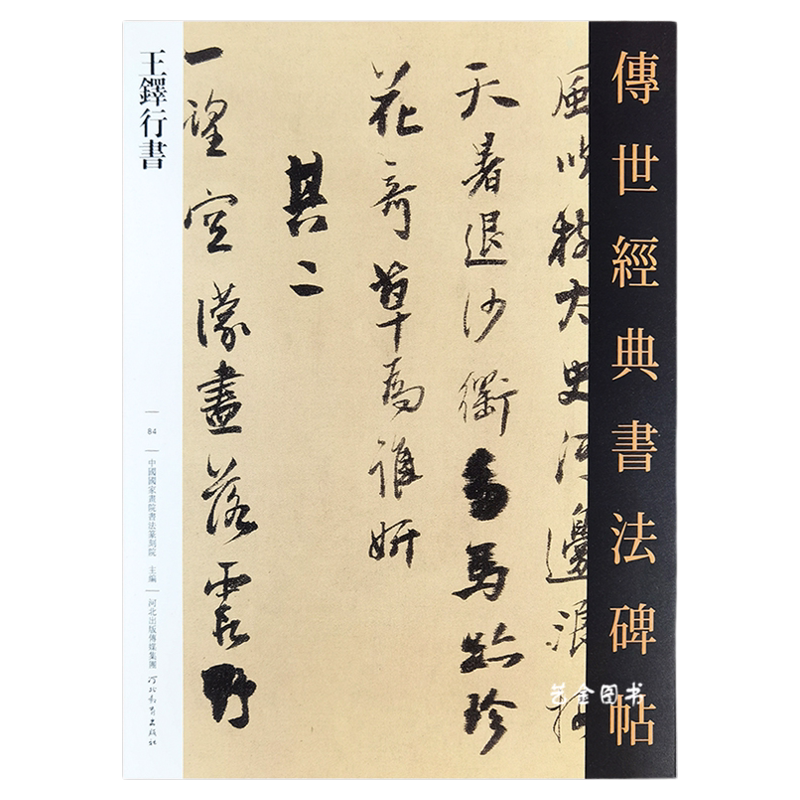 傳世經典書法碑帖
王鐸行書
風吹枝大史河邊浪
天暑退沙衢
馬跡珍
花奇草為誰妍
其二
一望空濛盡落霞野
84
中國國家畫院書法篆刻院 主編
河北出版傳媒集團
河北教育出版社
艺金图书